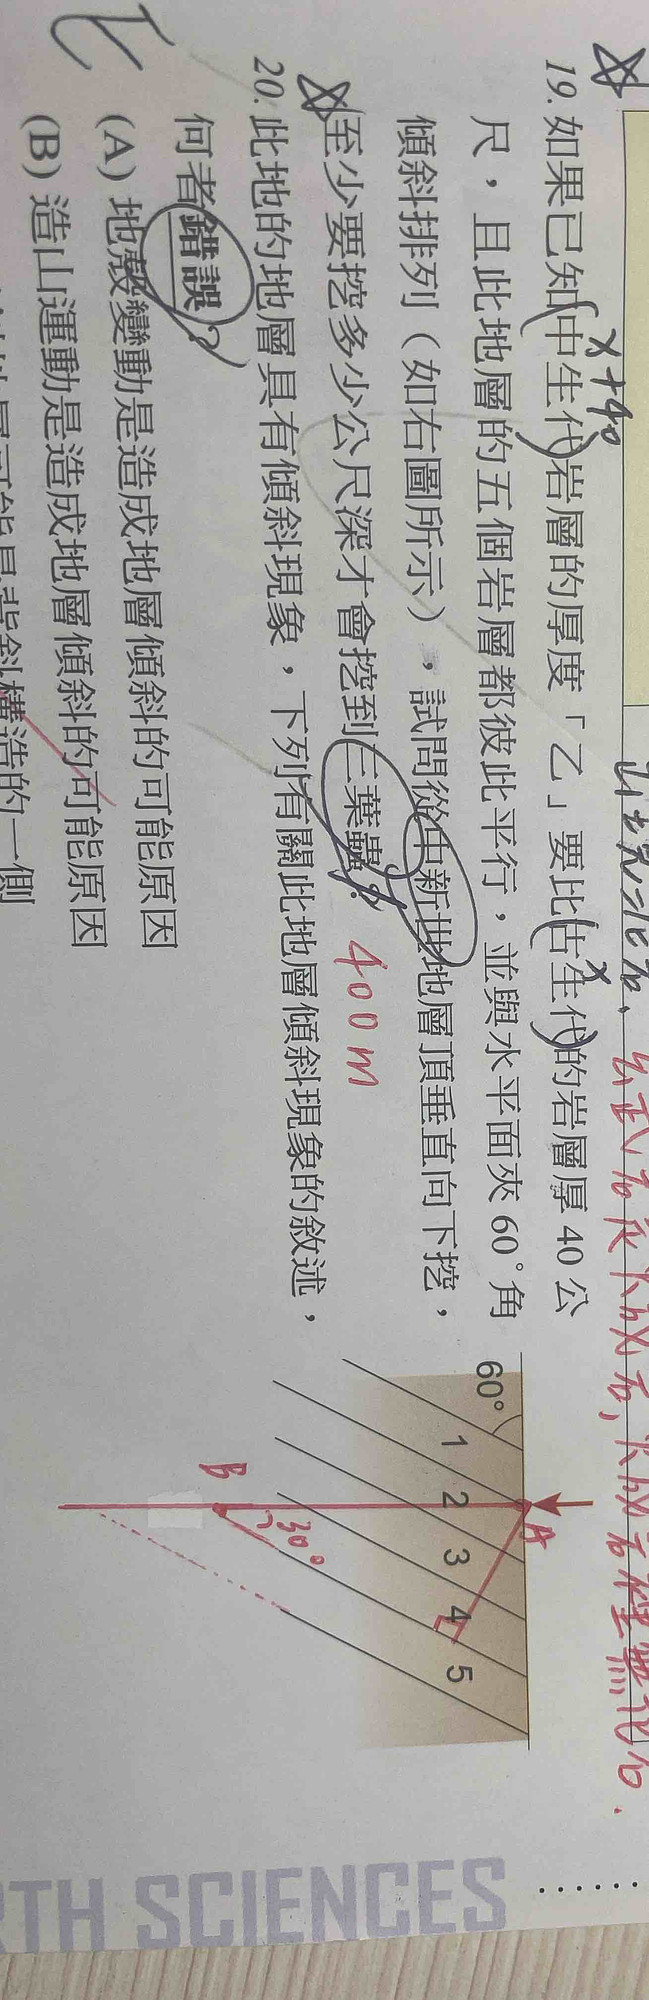 x+40
19.如果已知中生代岩層的厚度「乙」要比古生代的岩層厚 40 公
x
尺，且此地層的五個岩層都彼此平行，並與水平面夾 60°角
傾斜排列（如右圖所示），試問從中新世地層頂垂直向下挖，
至少要挖多少公尺深才會挖到三葉蟲？ 400m
20.此地的地層具有傾斜現象，下列有關此地層傾斜現象的敘述，
何者錯誤？
(A) 地殼變動是造成地層傾斜的可能原因
(B) 造山運動是造成地層傾斜的可能原因
60°
1
2
3
4
5
A
B
30°
TH SCIENCES